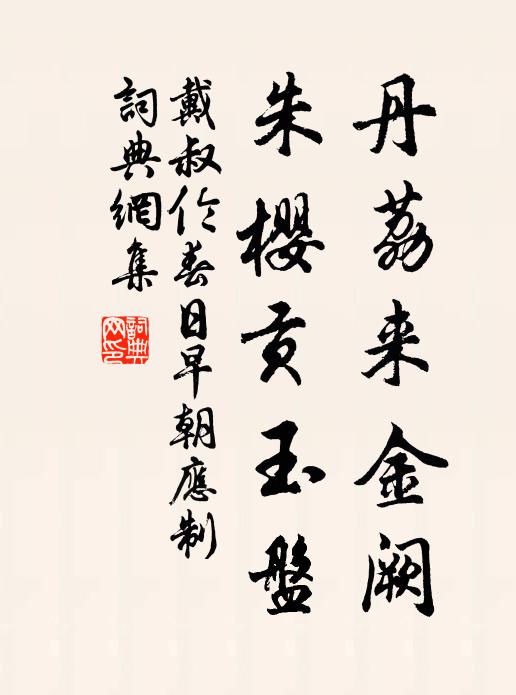 丹荔来金阙
朱樱贡玉盘
戴叔伦春日早朝應制
詞典網集
詞典網印